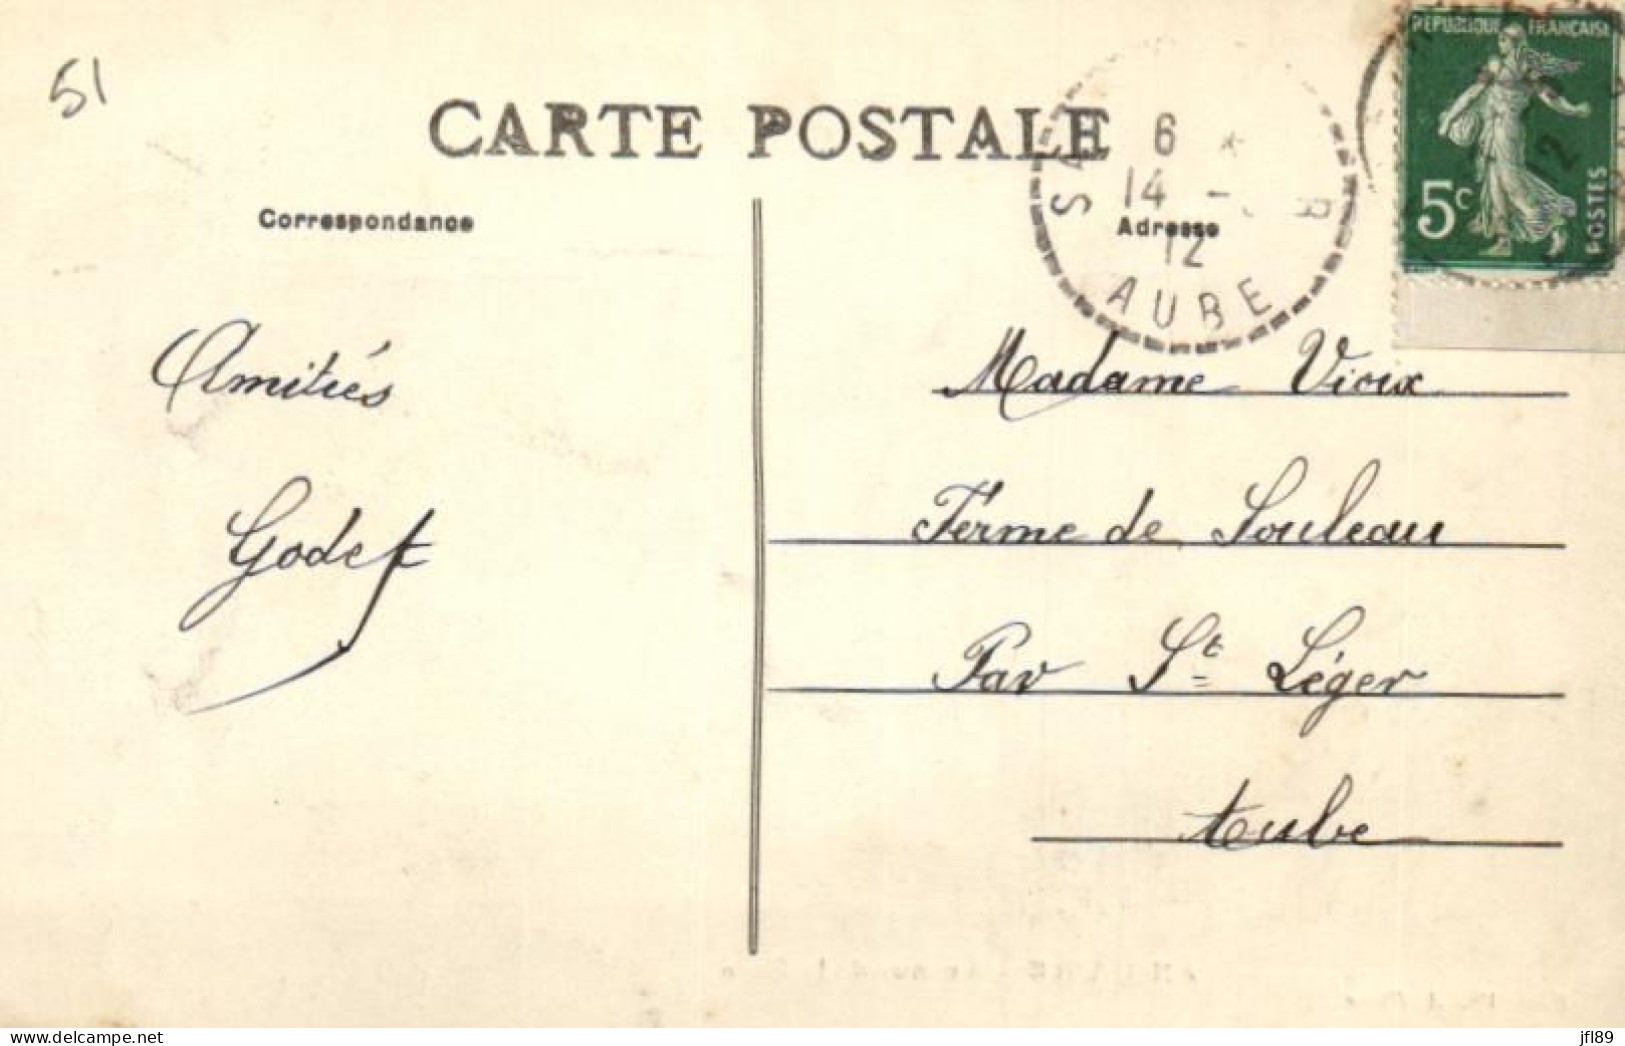 51
CARTE POSTALE
RÉPUBLIQUE FRANÇAISE
5c
POSTES
12
SA
6 *
14 -
12
AUBE
Correspondance
Adresse
Amitiés
Godef
Madame Vioix
Ferme de Souleau
Par St Léger
Aube
delcampe.net
jfl89